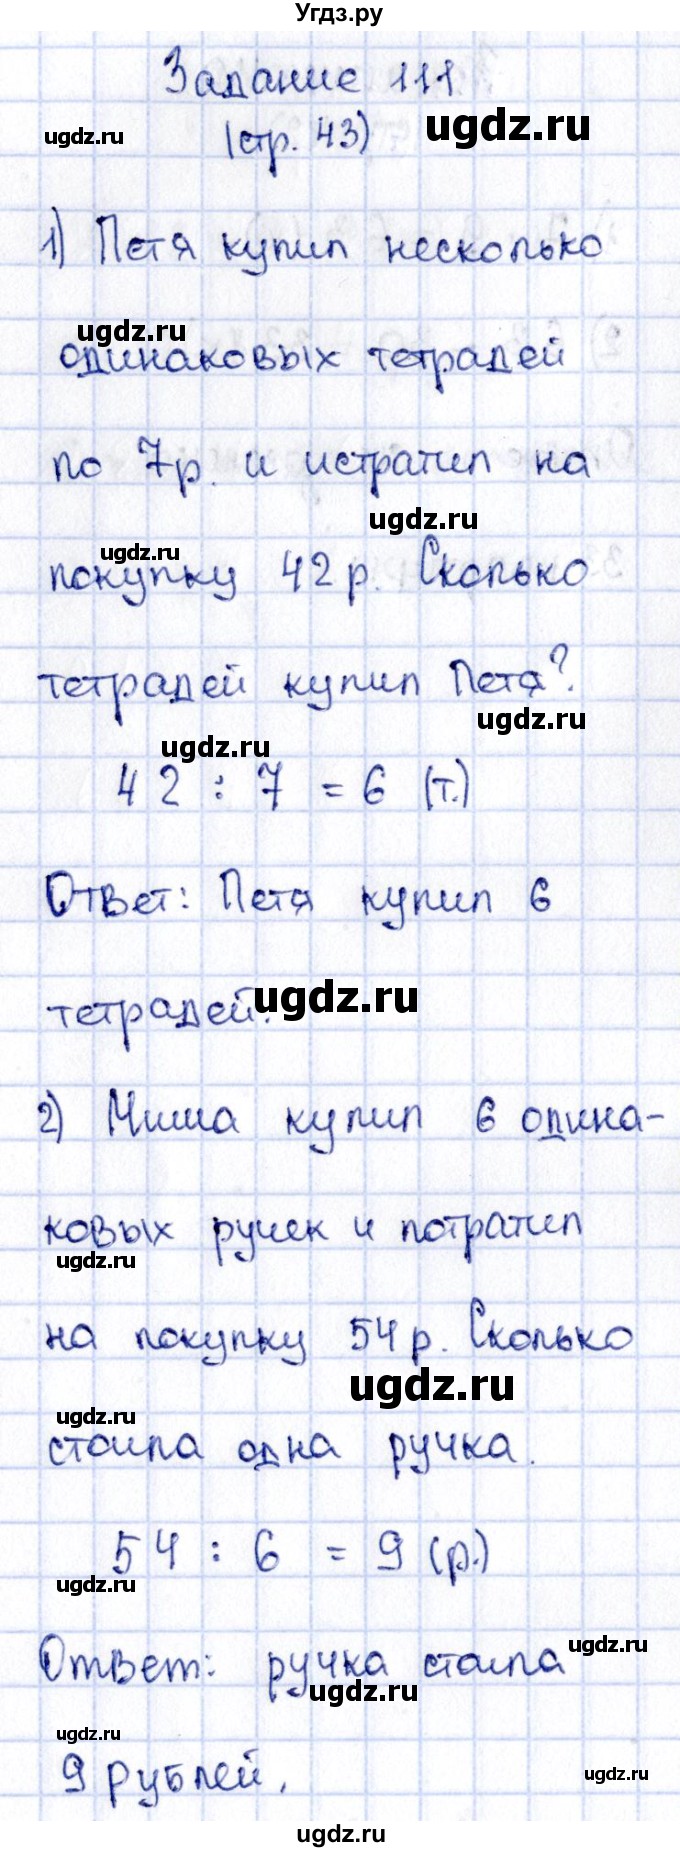 Угдз.ру
Задание 111
ugdz.ru
ugdz.ru
(стр. 43)
1) Петя купил несколько
ugdz.ru
одинаковых тетрадей
по 7р. и истратил на
ugdz.ru
ugdz.ru
покупку 42 р. Сколько
тетрадей купил Петя?
ugdz.ru
ugdz.ru
42 : 7 = 6 (т.)
Ответ: Петя купил 6
ugdz.ru
тетрадей.
2) Миша купил 6 одина-
ковых ручек и потратил
ugdz.ru
на покупку 54 р. Сколько
ugdz.ru
ugdz.ru
стоила одна ручка.
54 : 6 = 9 (р.)
ugdz.ru
ugdz.ru
Ответ: ручка стоила
ugdz.ru
ugdz.ru
9 рублей.
ugdz.ru
ugdz.ru